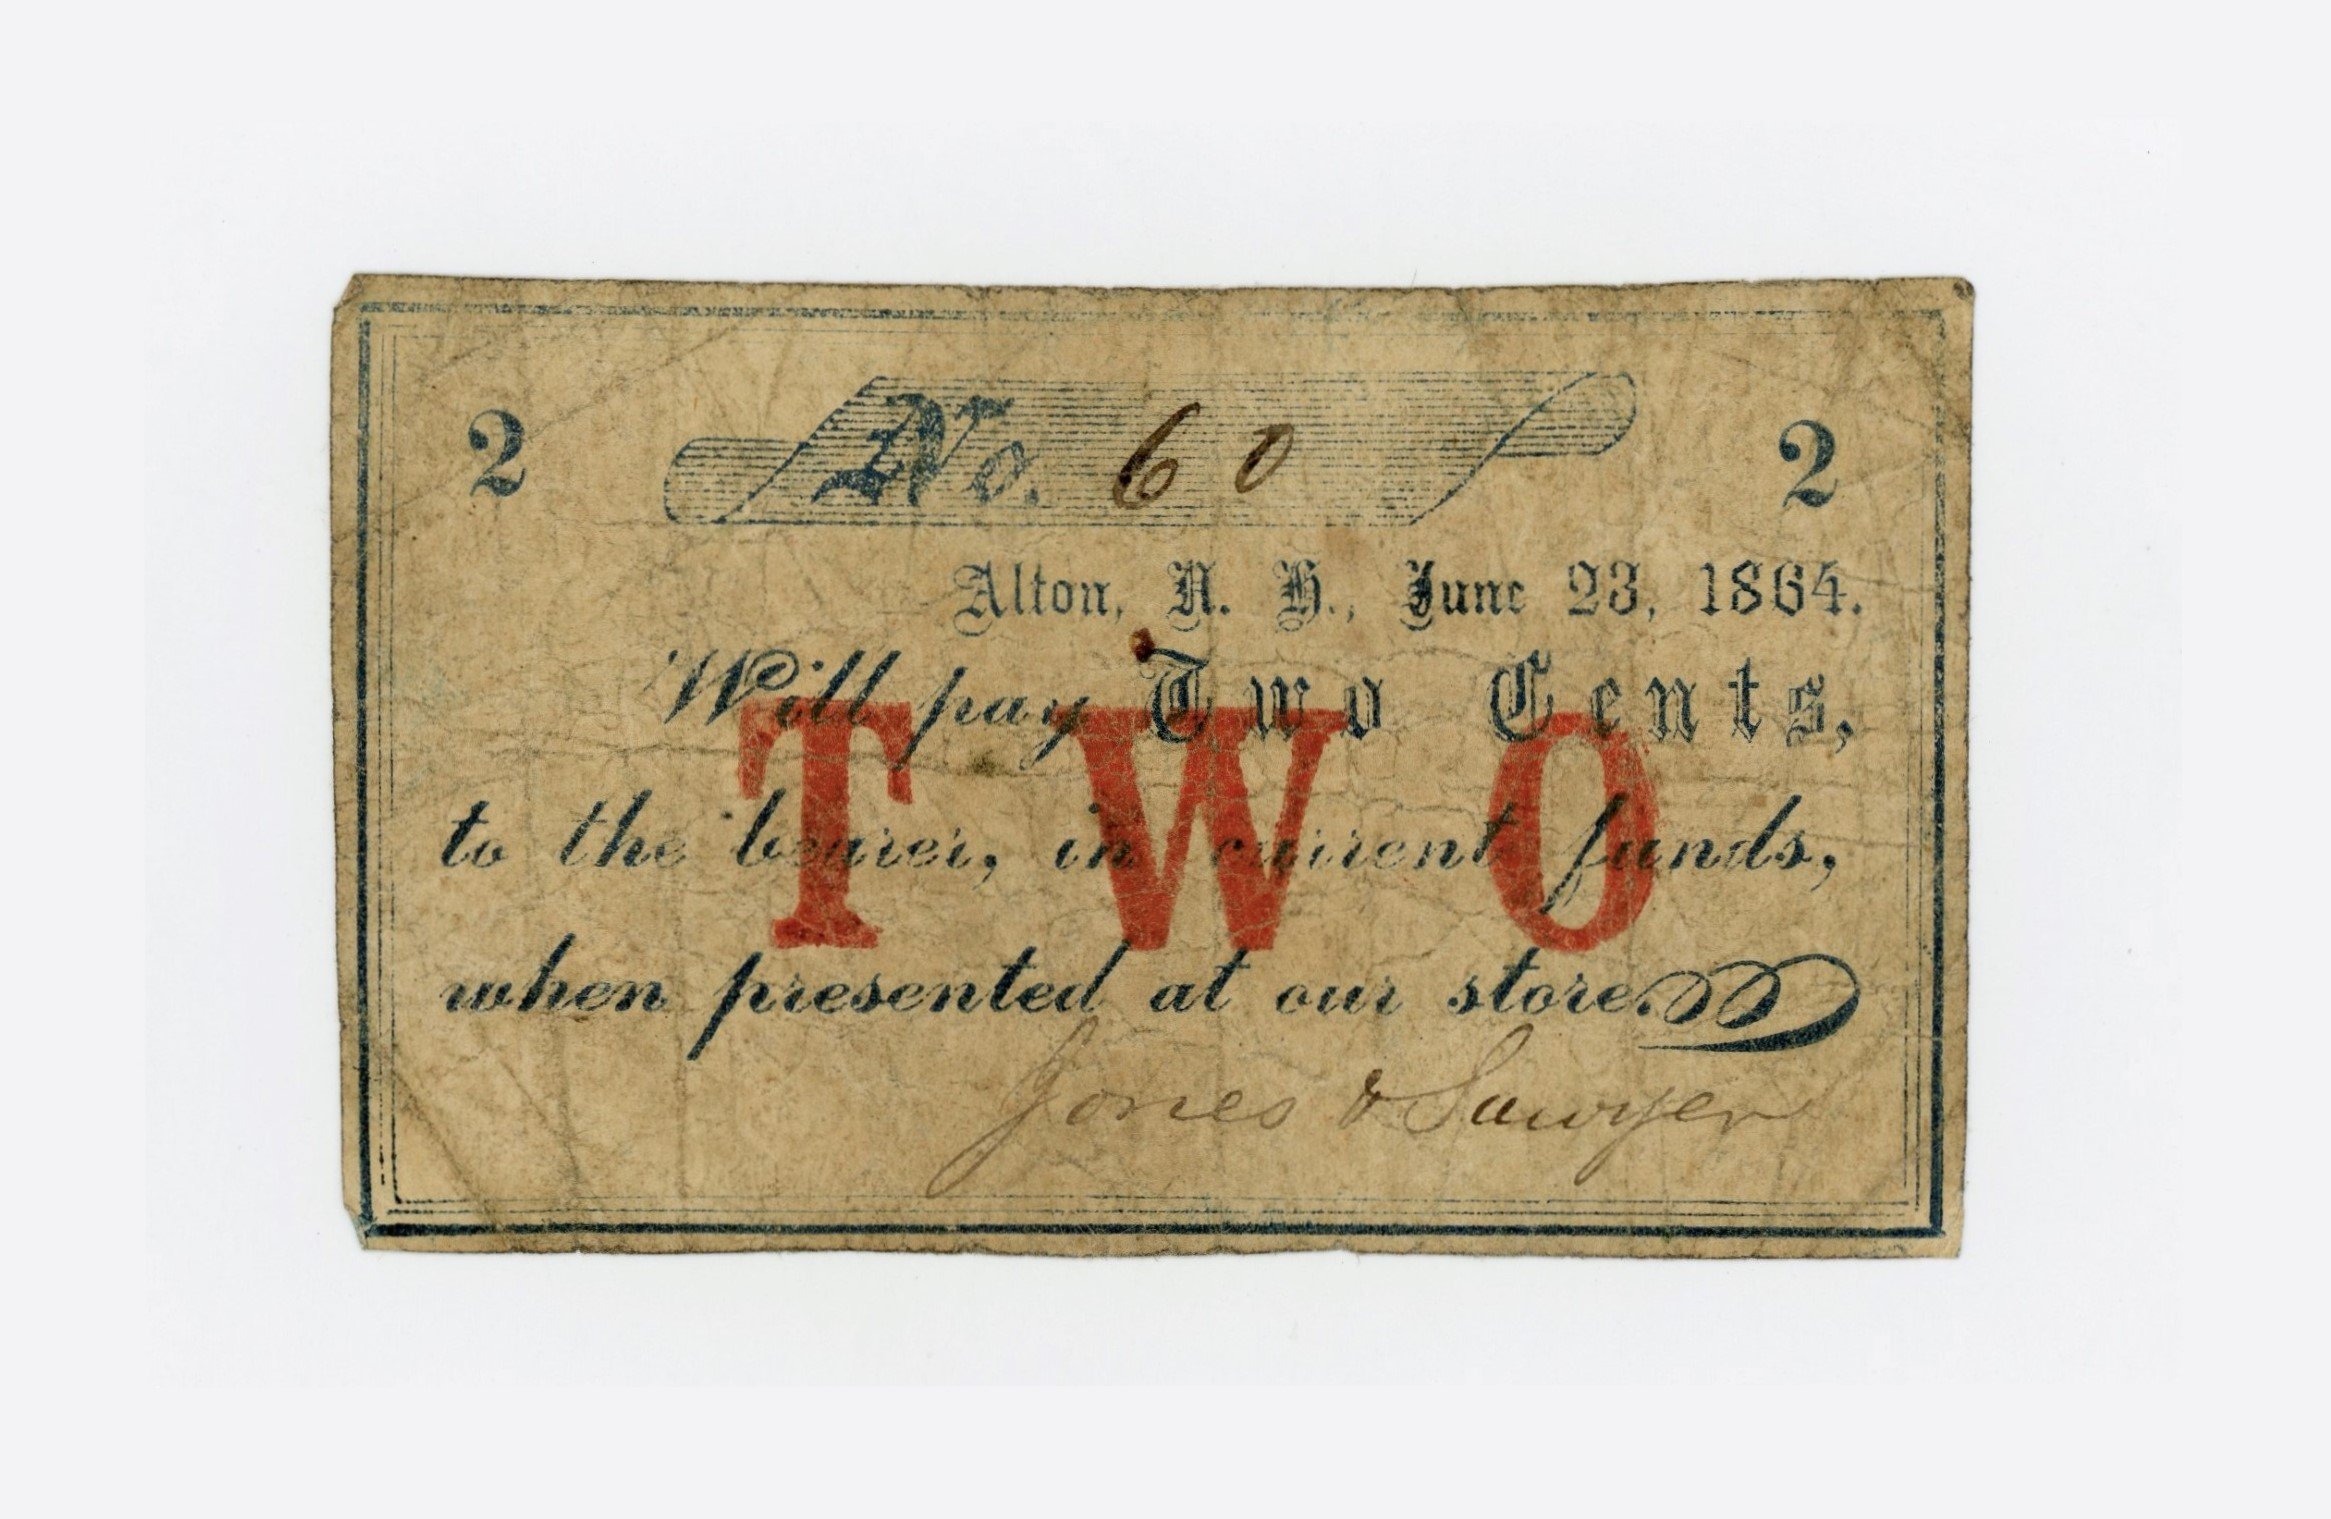 2 No. 60 2
Alton, N. H., June 23, 1864.
Will pay Two Cents,
TWO
to the bearer, in current funds,
when presented at our store.
Jones & Sawyer